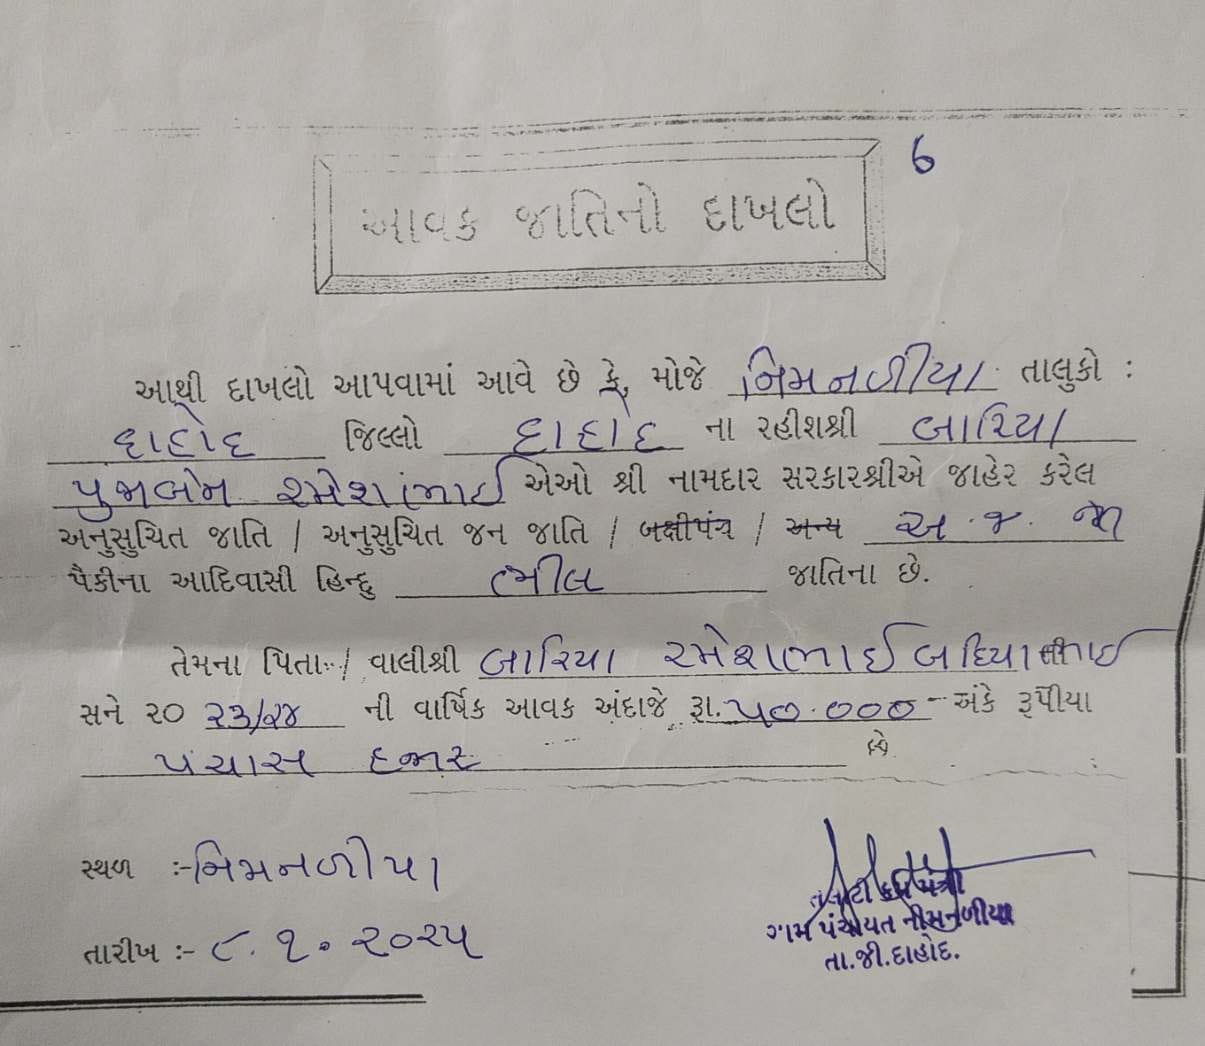 6
આવક જાતિનો દાખલો
આથી દાખલો આપવામાં આવે છે કે, મોજે નિમનળીયા તાલુકો :
દાહોદ જિલ્લો દાહોદ ના રહીશશ્રી બારિયા
પુજાબેન રમેશભાઈ એઓ શ્રી નામદાર સરકારશ્રીએ જાહેર કરેલ
અનુસુચિત જાતિ / અનુસુચિત જન જાતિ / બક્ષીપંચ / અન્ય અ.જ.જા
પૈકીના આદિવાસી હિન્દુ ભીલ જાતિના છે.
તેમના પિતા / વાલીશ્રી બારિયા રમેશભાઈ
સને ૨૦ ૨૩/૨૪ ની વાર્ષિક આવક અંદાજે રૂા. ૫૦.૦૦૦ - અંકે રૂપીયા
પચાસ હજાર છે
સ્થળ :- નિમનળીયા
તારીખ :- ૮.૧.૨૦૨૫
તલાટી કમ મંત્રી
ગ્રામ પંચાયત નીમનળીયા
તા.જી.દાહોદ.